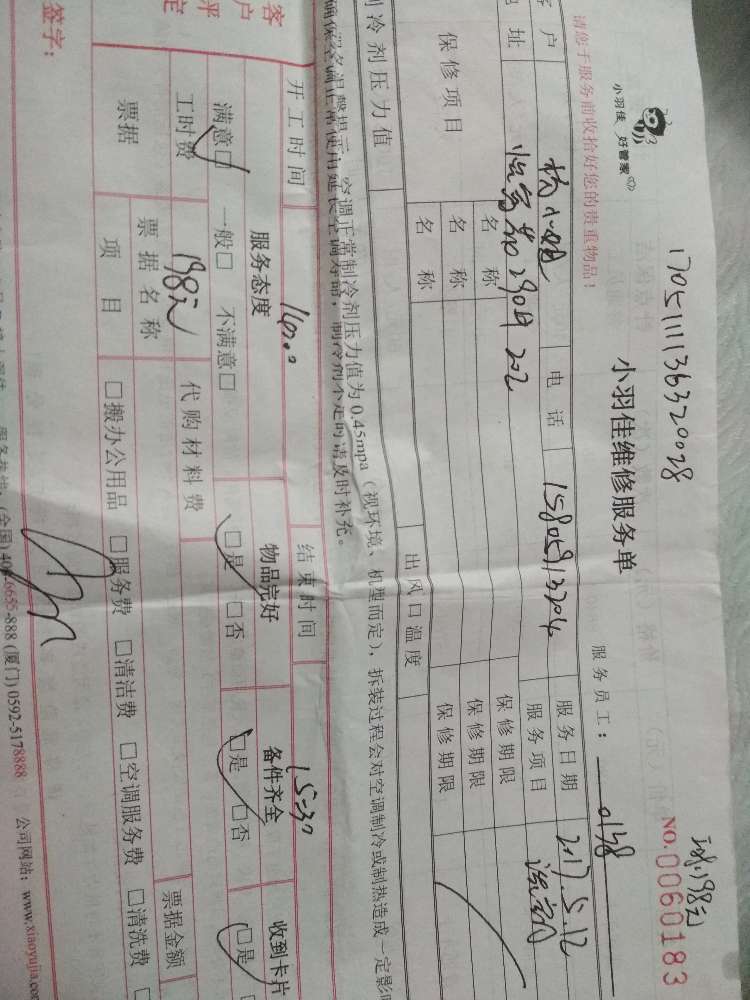 小羽佳 好管家
1705111136320028
小羽佳维修服务单
NO.0060183
请您于服务前收拾好您的贵重物品！
服务员工：
客户
电话
15805913204
服务日期
2017.5.12
地址
202
服务项目
保修项目
名称
保修期限
名称
保修期限
名称
保修期限
制冷剂压力值
出风口温度
空调正常制冷剂压力值为0.45mpa（视环境、机型而定），拆装过程会对空调制冷或制热造成一定影响
确保空调正常使用延长空调寿命，制冷剂不足时请及时补充。
开工时间
14:00
结束时间
15:30
服务态度
物品完好
备件齐全
收到卡片
满意□ 一般□ 不满意□
□是 □否
□是 □否
□是
工时费
198元
代购材料费
票据
票据名称
票据金额
项目
□搬办公用品 □服务费 □清洁费 □空调服务费 □清洗费
签字：
(厦门)0592-5178888
公司网站：www.xiaoyujia.co